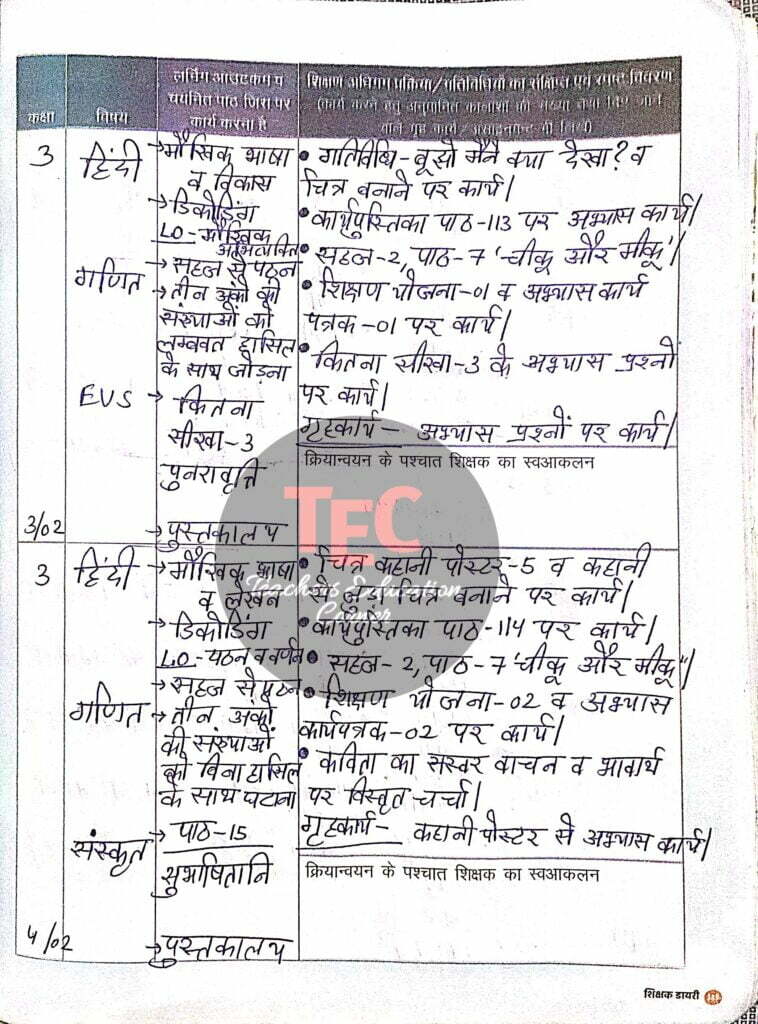 कक्षा
विषय
लर्निंग आउटकम व
चयनित पाठ जिस पर
कार्य करना है
शिक्षण अधिगम प्रक्रिया/गतिविधियों का संक्षिप्त एवं स्पष्ट विवरण
(कार्य करने हेतु अनुमानित कालांशों की संख्या तथा दिए जाने
वाले गृह कार्य/असाइनमेन्ट भी लिखें)
3
हिंदी
→ मौखिक भाषा
व विकास
→ डिकोडिंग
LO - मौखिक
अभिव्यक्ति
→ सहज से पठन
गणित
→ तीन अंकों की
संख्याओं को
लम्बवत हासिल
के साथ जोड़ना
EVS
→ कितना
सीखा-3
पुनरावृत्ति
3/02
→ पुस्तकालय
• गतिविधि - बूझो मैंने क्या देखा? व
चित्र बनाने पर कार्य।
• कार्यपुस्तिका पाठ-113 पर अभ्यास कार्य।
• सहज-2, पाठ-7 'चीकू और मीकू'।
• शिक्षण योजना-01 व अभ्यास कार्य
पत्रक-01 पर कार्य।
• कितना सीखा-3 के अभ्यास प्रश्नों
पर कार्य।
गृहकार्य - अभ्यास प्रश्नों पर कार्य।
क्रियान्वयन के पश्चात शिक्षक का स्वआकलन
TEC
Teachers Education
Corner
3
हिंदी
→ मौखिक भाषा
व लेखन
→ डिकोडिंग
L.O - पठन व वर्णन
→ सहज से पठन
गणित
→ तीन अंकों
की संख्याओं
को बिना हासिल
के साथ घटाना
संस्कृत
→ पाठ-15
सुभाषितानि
4/02
→ पुस्तकालय
• चित्र कहानी पोस्टर-5 व कहानी
से जुड़े चित्र बनाने पर कार्य।
• कार्यपुस्तिका पाठ-114 पर कार्य।
• सहज-2, पाठ-7 'चीकू और मीकू'।
• शिक्षण योजना-02 व अभ्यास
कार्यपत्रक-02 पर कार्य।
• कविता का सस्वर वाचन व भावार्थ
पर विस्तृत चर्चा।
गृहकार्य - कहानी पोस्टर से अभ्यास कार्य।
क्रियान्वयन के पश्चात शिक्षक का स्वआकलन
शिक्षक डायरी